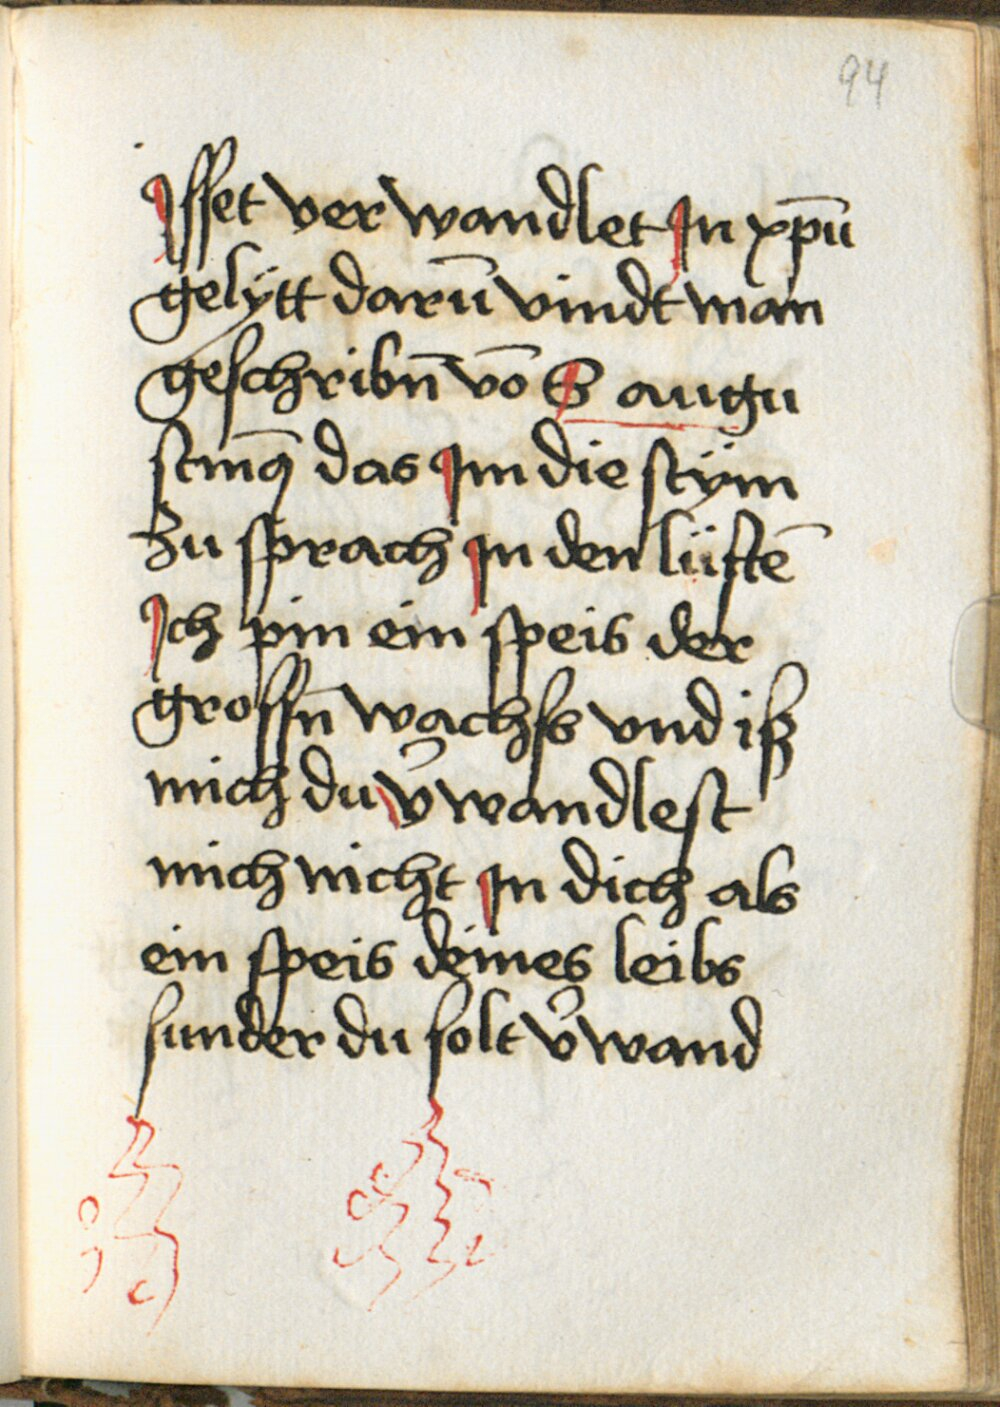 94
Isset ver wandlet In xp̄ū
gelÿtt darū vindt man
geschribn̄ vō S augu
stinꝰ das Im die stÿm
Zu sprach In den lüftē
Ich pin ein speis der
grossn̄ wachss vnd iß
mich du v̾wandlest
mich nicht In dich als
ein speis deines leibs
sunder du solt v̾wand